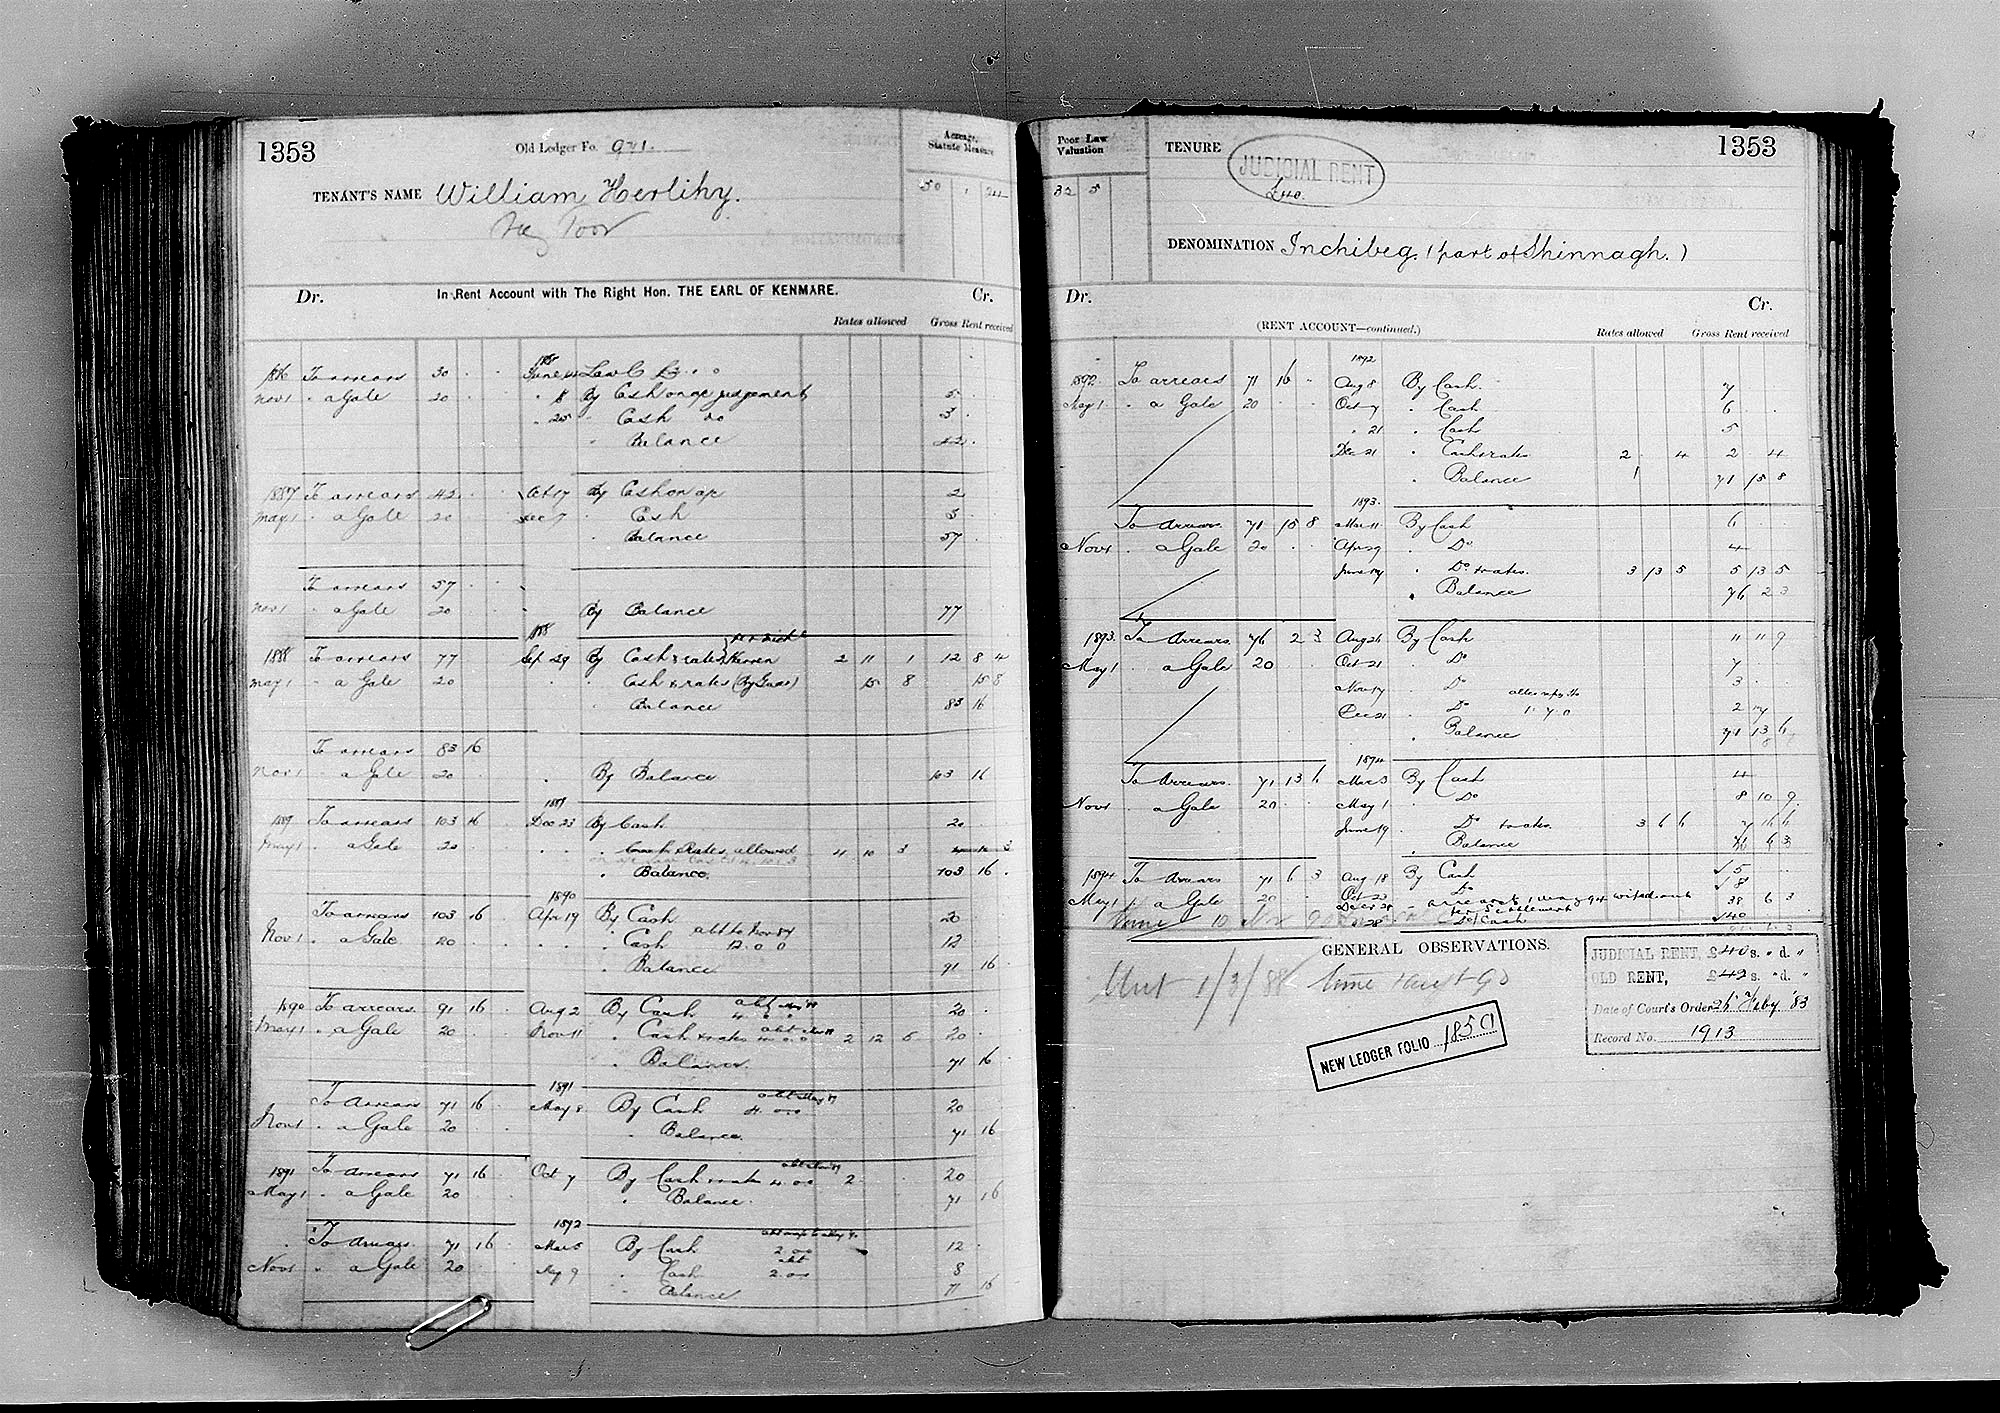 1353
Old Ledger Fo. 971.
Acreage, Statute Measure
TENANT'S NAME William Herlihy.
50 1 24
Dr. In Rent Account with The Right Hon. THE EARL OF KENMARE. Cr.
Rates allowed Gross Rent received
1886 To arrears 30 June Law C
Nov 1 " a Gale 20 " 8 By Cash on a/c judgement 5
" 25 " Cash do 3
" Balance 42
1887 To arrears 42 Oct 17 By Cash on a/c 2
May 1 " a Gale 20 Dec 7 " Cash 3
" Balance 57
To arrears 57
Nov 1 " a Gale 20 By Balance 77
1888
1888 To arrears 77 Sep 29 By Cash & rates 2 11 1 12 8 4
May 1 " a Gale 20 " Cash & rates (By Guar) 15 8 15 8
" Balance 83 16
To arrears 83 16
Nov 1 " a Gale 20 By Balance 103 16
1889
1889 To arrears 103 16 Dec 23 By Cash 20
May 1 a Gale 20 " Rates allowed 4 10 3
" Balance. 103 16
1890
To arrears 103 16 Apr 19 By Cash 20
Nov 1 " a Gale 20 " Cash 12.0.0 12
" Balance 91 16
1890 To arrears 91 16 Aug 2 By Cash 4 20
May 1 " a Gale 20 Nov 11 " Cash & rates 2 12 5 20
" Balance. 71 16
1891
To Arrears 71 16 May 8 By Cash 4.0.0 20
Nov 1 " a Gale 20 " Balance. 71 16
1891 To arrears 71 16 Oct 7 By Cash & rates 4.0.0 2 20
May 1 " a Gale 20 " Balance. 71 16
1892
To Arrears 71 16 Mar 5 By Cash 2.0.0 12
Nov 1 " a Gale 20 May 9 " Cash 2.0.0 8
" Balance 71 16
Poor Law Valuation
32 5
TENURE JUDICIAL RENT
£40.
1353
DENOMINATION Inchibeg. (part of Shinnagh.)
Dr. Cr.
(RENT ACCOUNT—continued.)
Rates allowed Gross Rent received
1892
1892. To arrears 71 16 Aug 8 By Cash. 7
May 1. " a Gale 20 Oct 7 " Cash 6
" 21 " Cash 5
Dec 21 " Cash & rates 2 4 2 4
" Balance 71 15 8
1893.
To Arrears. 71 15 8 Mar 11 By Cash 6
Nov 1 " a Gale 20 Apr 29 " Do 4
June 14 " Do & rates. 3 13 5 5 13 5
" Balance 76 2 3
1893. To Arrears. 76 2 3 Aug 26 By Cash " " 9
May 1 a Gale 20 Oct 21 " Do 7
Nov 17 " Do 3
Dec 21 " Do 1.7.0 2 17
" Balance 71 13 6
1894
To Arrears. 71 13 6 Mar 3 By Cash 4
Nov 1 " a Gale 20 May 1 " Do 8 10 9
June 19 Do & rates. 3 6 6 7 16 6
" Balance 71 6 3
1894 To Arrears 71 6 3 Aug 18 By Cash 5
May 1 " a Gale 20 Oct 23 Do 8
Decr 28 " arrears to 1 May 94 writed out 38 6 3
per Settlement
" 28 Do Cash 40
GENERAL OBSERVATIONS.
1/3/88
JUDICIAL RENT, £40 s. " d. "
OLD RENT, £49 s. " d. "
Date of Court's Order 26 Feby '83
Record No. 1913
NEW LEDGER FOLIO 1850